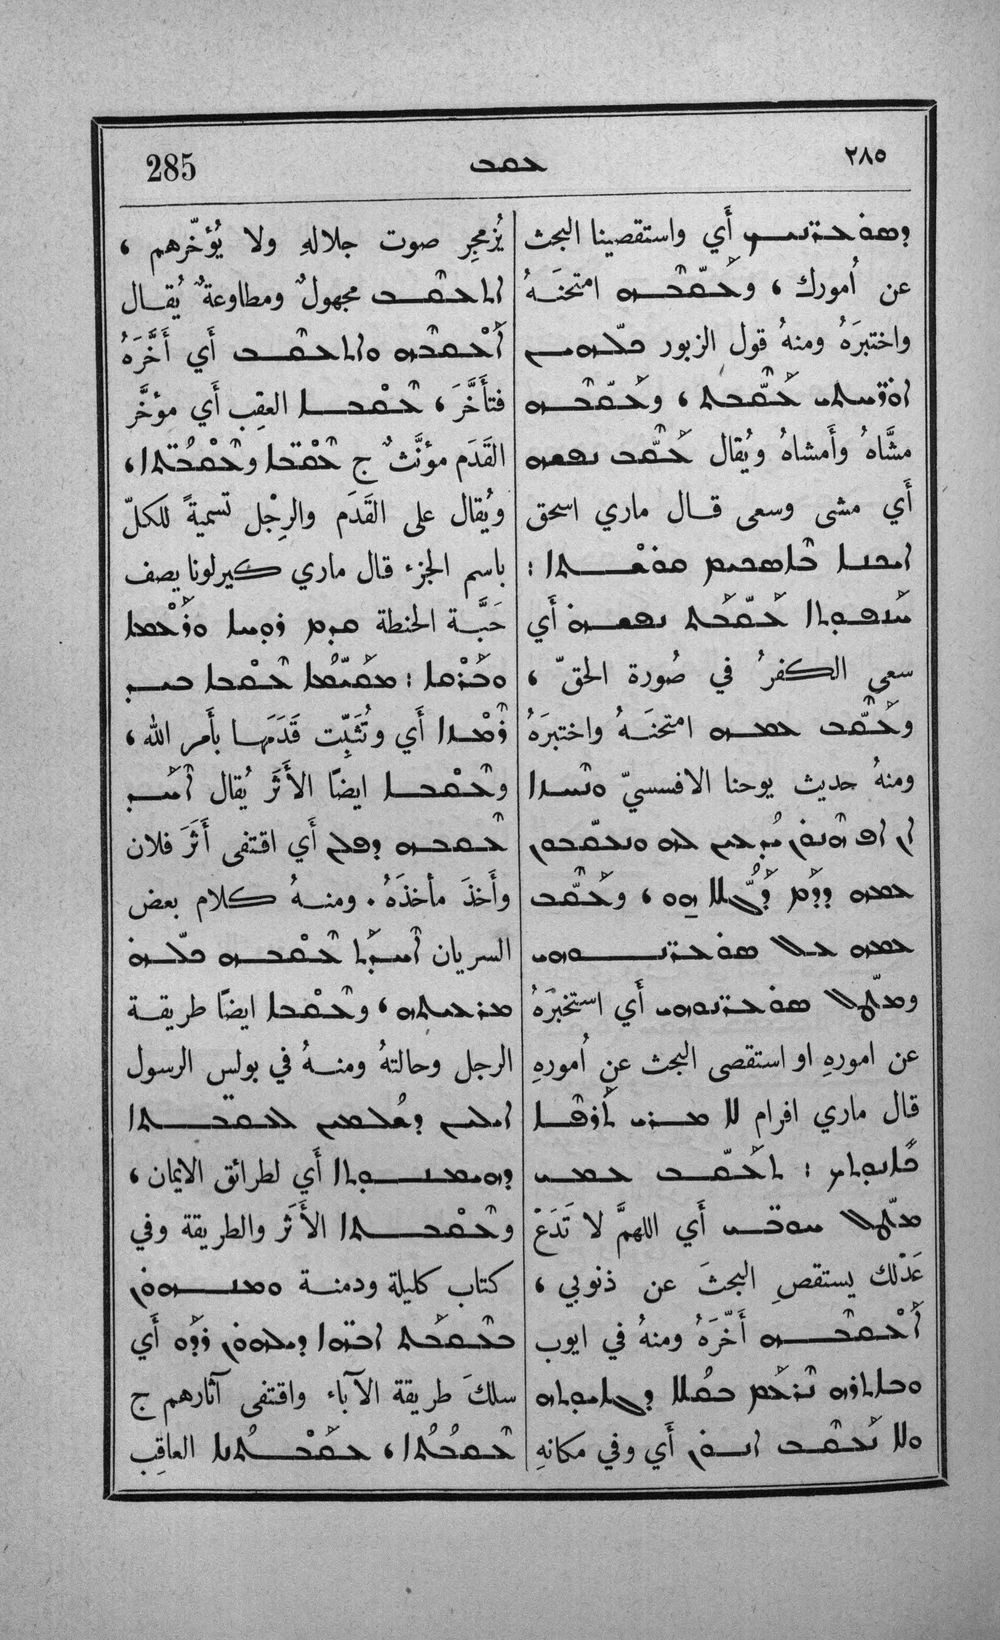 285 ܥܩܒ ٢٨٥
ܕܣܘܥܪ̈ܢܝܟ أَي واستقصينا البحث
عن أُمورك ، وܥܰܩܒܶܗ امتحَنَهُ
واختبرَهُ ومنهُ قول الزبور
ܐܘܪ̈ܚܬܝ ܥܰܩܶܒܬ ، وܥܰܩܒܶܗ
مشَّاهُ وأَمشاهُ ويُقال ܥܰܩܶܒ ܢܦܫܗ
أَي مشى وسعى قال ماري اسحق
ܐܝܟܢܐ
ܚܢܦܘܬܐ ܥܰܩܒܰܬ ܢܦܫܗ أَي
سعى الكفرُ في صُورة الحقّ ،
وܥܰܩܶܒ ܥܡܗ امتحنَهُ واختبرَهُ
ومنهُ حديث يوحنا الافسسيّ ܘܢܚܬܐ
ܥܡܗ ، وܥܰܩܶܒ
ܥܡܗ ܥܠ ܣܘܥܪ̈ܢܘܗܝ
وܡܛܠ ܣܘܥܪ̈ܢܘܗܝ أَي استخبرَهُ
عن امورهِ او استقصى البحث عن أُمورهِ
قال ماري افرام ܠܐ ܡܪܝ ܬܰܪܦܶܐ
ܟܺܐܢܘܬܟ : ܬܥܰܩܶܒ ܥܡܝ
ܡܛܠ ܚܘ̈ܒܝ أَي اللهمَّ لا تَدَعْ
عَدْلك يستقصِ البحثَ عن ذنوبي ،
ܐܰܥܩܒܶܗ أَخَّرَهُ ومنهُ في ايوب
ܘܒܐܬܪܗ ܢܰܪܥܶܡ ܒܩܳܠܐ ܕܓܐܝܘܬܗ
ܘܠܐ ܢܰܥܩܶܒ ܐܢܘܢ أَي وفي مكانهِ
يُزمجِر صوت جلالهِ ولا يُؤخّرهم ،
ܐܬܥܩܶܒ مجهولٌ ومطاوعةٌ يُقال
ܐܰܥܩܒܶܗ ܘܐܬܥܩܶܒ أَي أَخَّرَهُ
فتأَخَّرَ ، ܥܶܩܒܐ العقِب أَي مؤخَّر
القَدَم مؤنَّثٌ ج ܥܶܩ̈ܒܐ وܥܶܩܒܳܬ̈ܐ ،
ويُقال على القَدَم والرِجْل تسميةً للكلّ
باسم الجزء قال ماري كيرلونا يصف
حَبَّة الحنطة ܩܕܡ ܪܘܚܐ ܘܪܰܥܡܐ
ܘܒܰܪܩܐ : ܡܩܝܡܐ ܥܶܩܒܐ ܒܝܕ
ܪܶܡܙܐ أَي وتُثَبِّت قَدَمَها بأَمر الله ،
وܥܶܩܒܐ ايضًا الأَثَر يُقال ܐܶܚܰܕ
ܥܶܩܒܗ ܕܦܠܢ أَي اقتفى أَثَرَ فلان
وأَخذَ مأخذَهُ . ومنهُ كلام بعض
السريان ܐܶܚܕܰܬ ܥܶܩܒܗ
ܡܪܥܝܬܗ ، وܥܶܩܒܐ ايضًا طريقة
الرجل وحالتهُ ومنهُ في بولس الرسول
ܐܝܠܝܢ ܕܫܳܠܡܝܢ ܠܥܩܒܬܐ
ܕܗܝܡܢܘܬܐ أَي لطرائق الايمان ،
وܥܶܩܒܬܐ الأَثَر والطريقة وفي
كتاب كليلة ودمنة
ܒܥܶܩܒܰܬ ܐܒ̈ܗܐ ܕܝܠܗܘܢ ܪܕܐ أَي
سلكَ طريقة الآباء واقتفى آثارهم ج
ܥܶܩܒܳܬܐ ، ܥܰܩܒܳܬܢܐ العاقِب